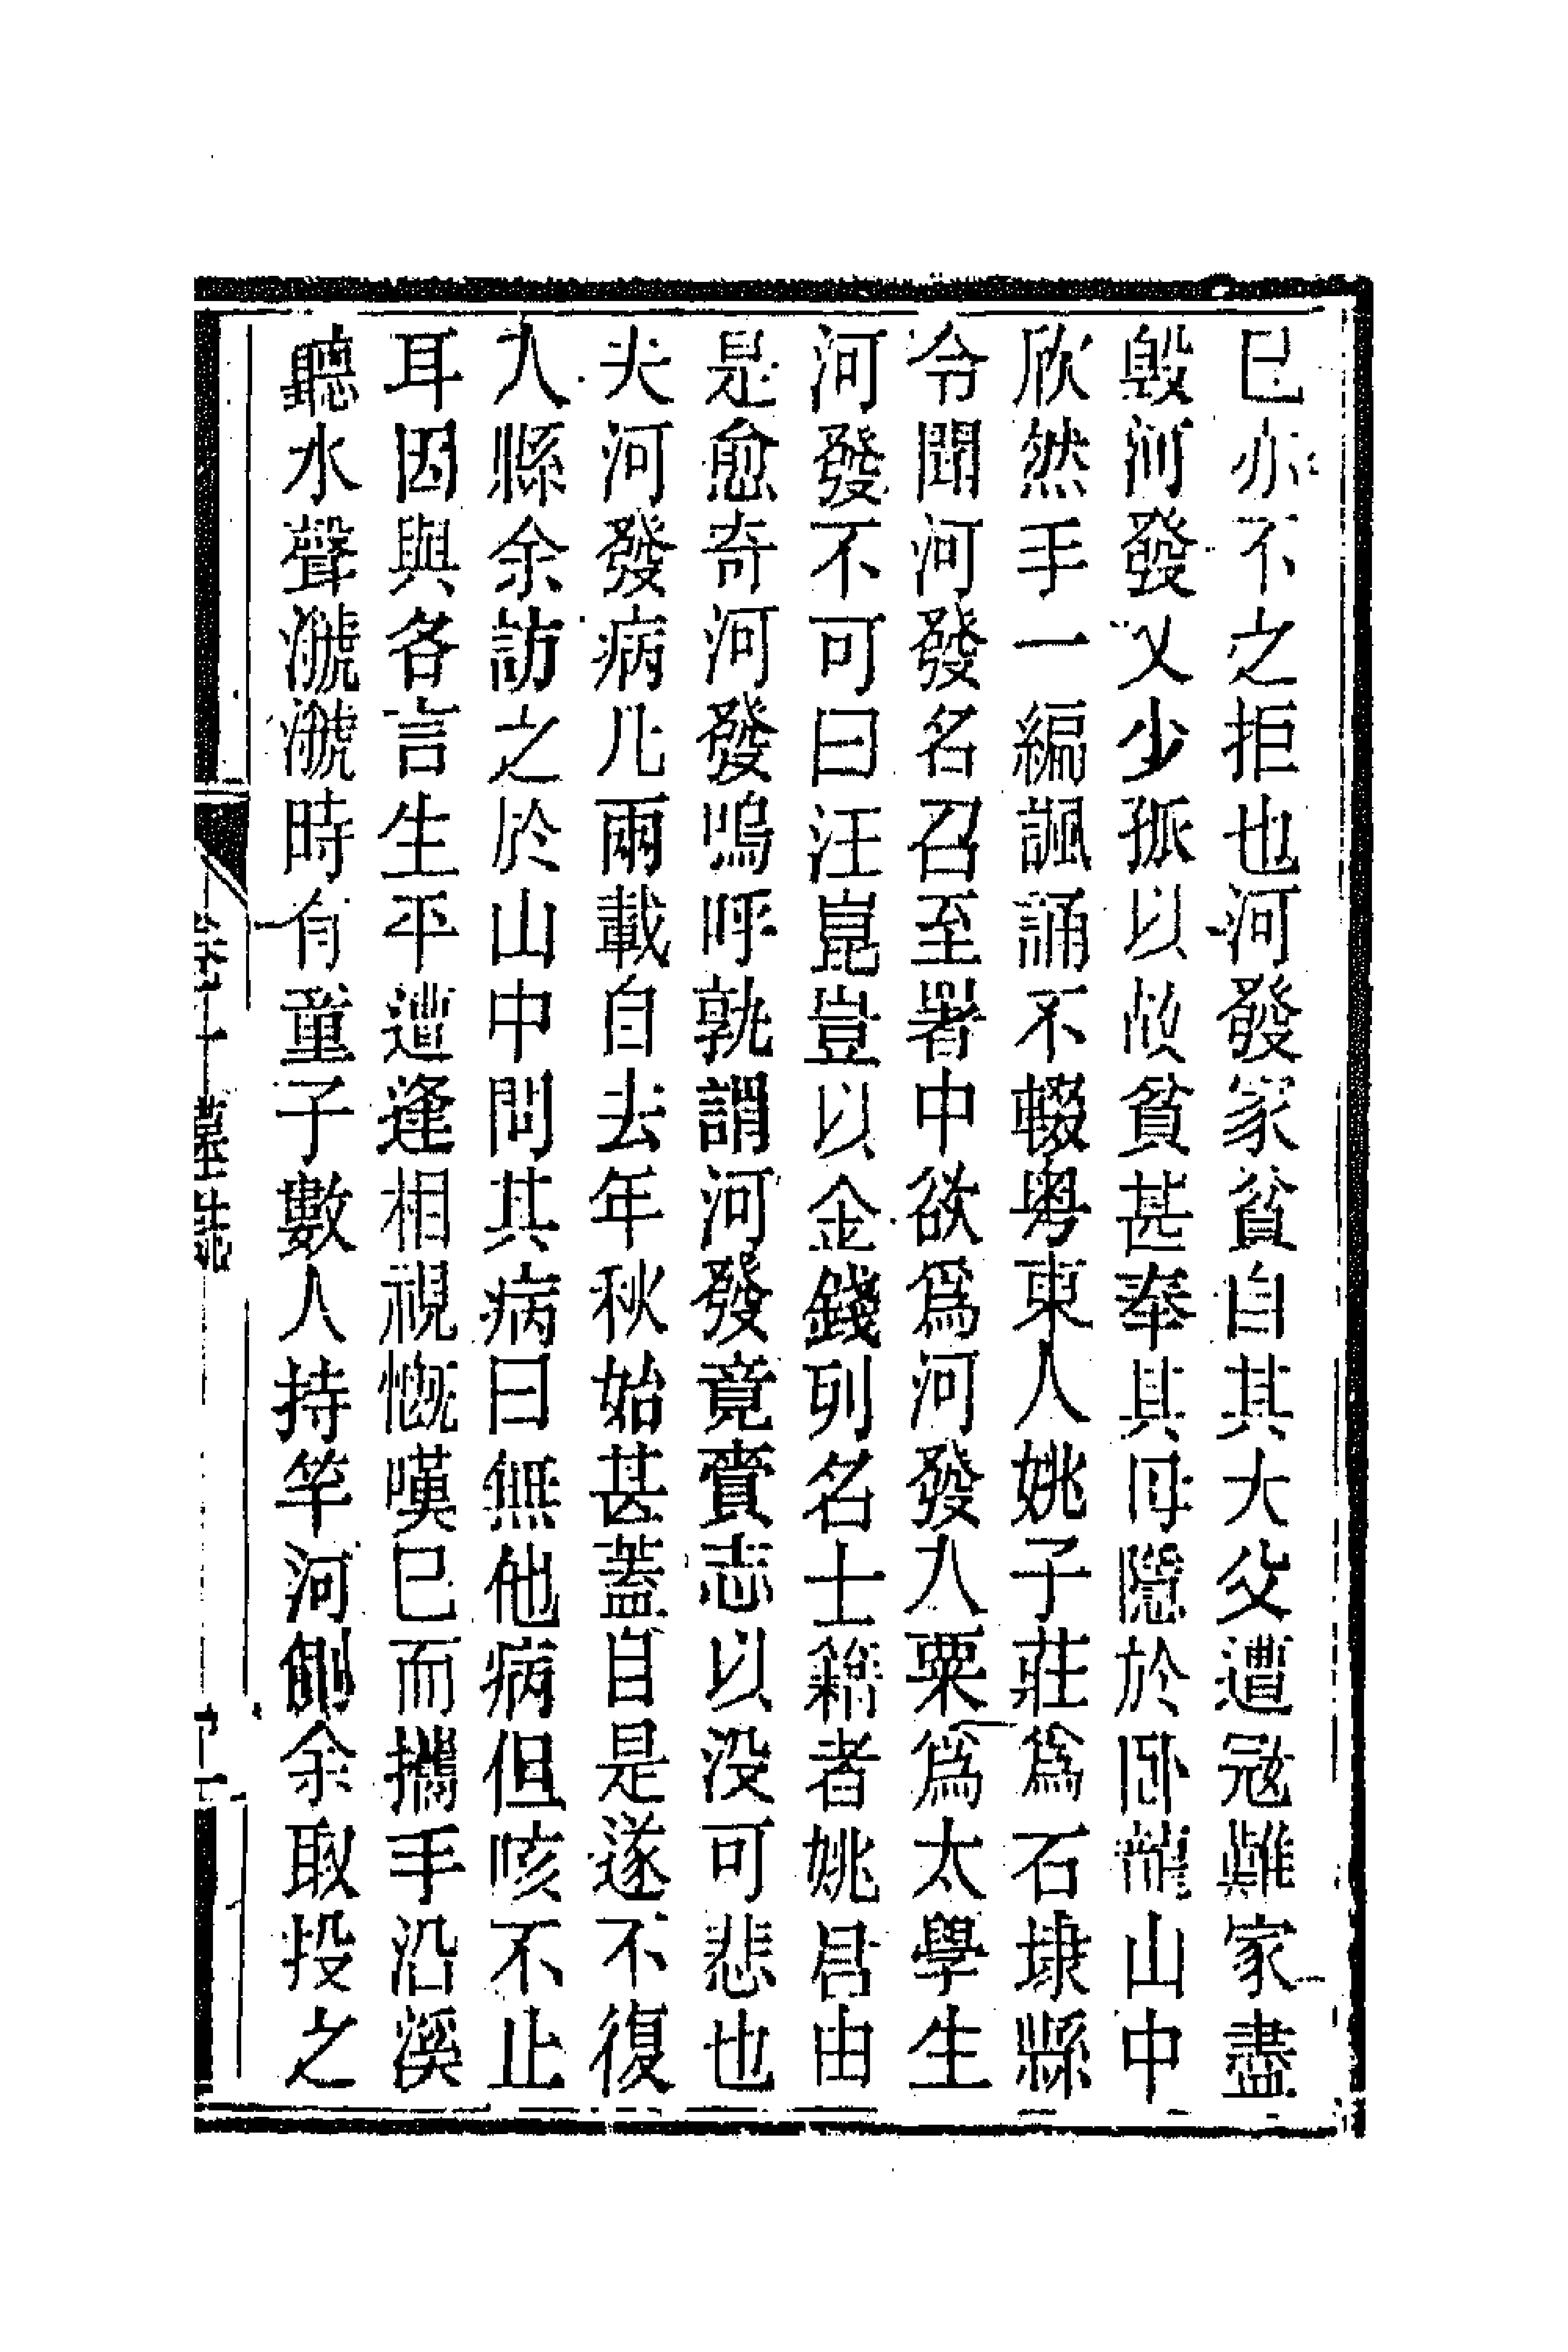 已亦不之拒也河發家貧自其大父遭冦難家盡
毁河發又少孤以故貧甚奉其母隱於卧龍山中
欣然手一編諷誦不輟粤東人姚子莊爲石埭縣
令聞河發名召至署中欲爲河發入粟爲太學生
河發不可曰汪崑豈以金錢列名士籍者姚君由
是愈奇河發嗚呼孰謂河發竟賫志以没可悲也
夫河發病凡兩載自去年秋始甚蓋自是遂不復
入縣余訪之於山中問其病曰無他病但咳不止
耳因與各言生平遭逢相視慨嘆已而攜手沿溪
聽水聲㶁㶁時有童子數人持竿河側余取投之
卷十 墓誌